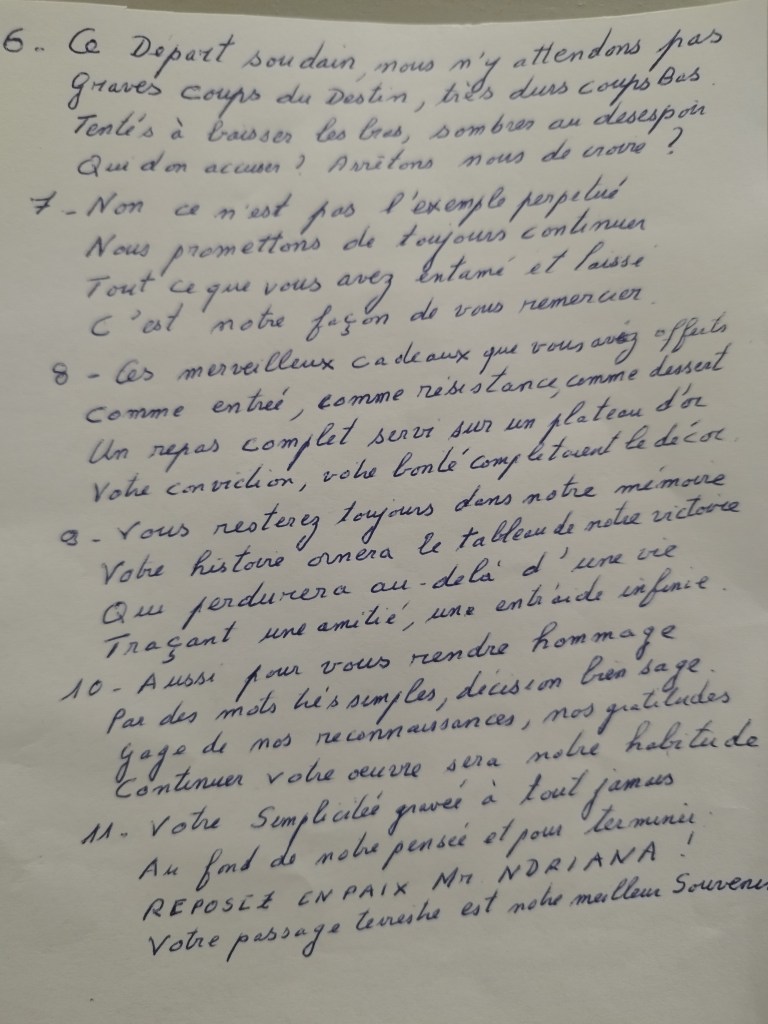 6.. Ce Départ soudain, nous n'y attendons pas
Graves coups du Destin, très durs coups Bas
Tentés à baisser les bras, sombres au desespoir
Qui d'on accuser? Arrêtons nous de croire?
7 - Non ce n'est pas l'exemple perpetué
Nous promettons de toujours continuer
Tout ce que vous avez entamé et laissé
C'est notre façon de vous remercier.
8 - Ces merveilleux cadeaux que vous avez offerts
Comme entreé, comme résistance, comme dessert
Un repas complet servi sur un plateau d'or
Votre conviction, votre bonté complétaient le décor.
9 - Vous resterez toujours dans notre mémoire
Votre histoire ornera le tableau de notre victoire
Qui perdurera au-delà d'une vie
Traçant une amitié, une entraide infinie.
10 - Aussi pour vous rendre hommage
Par des mots très simples, décision bien sage.
Gage de nos reconnaissances, nos gratitudes
Continuer votre oeuvre sera notre habitude
11. Votre Simplicitée graveé à tout jamais
Au fond de notre penseé et pour terminer.
REPOSEZ EN PAIX Mr NDRIANA!
Votre passage terrestre est notre meilleur Souvenir